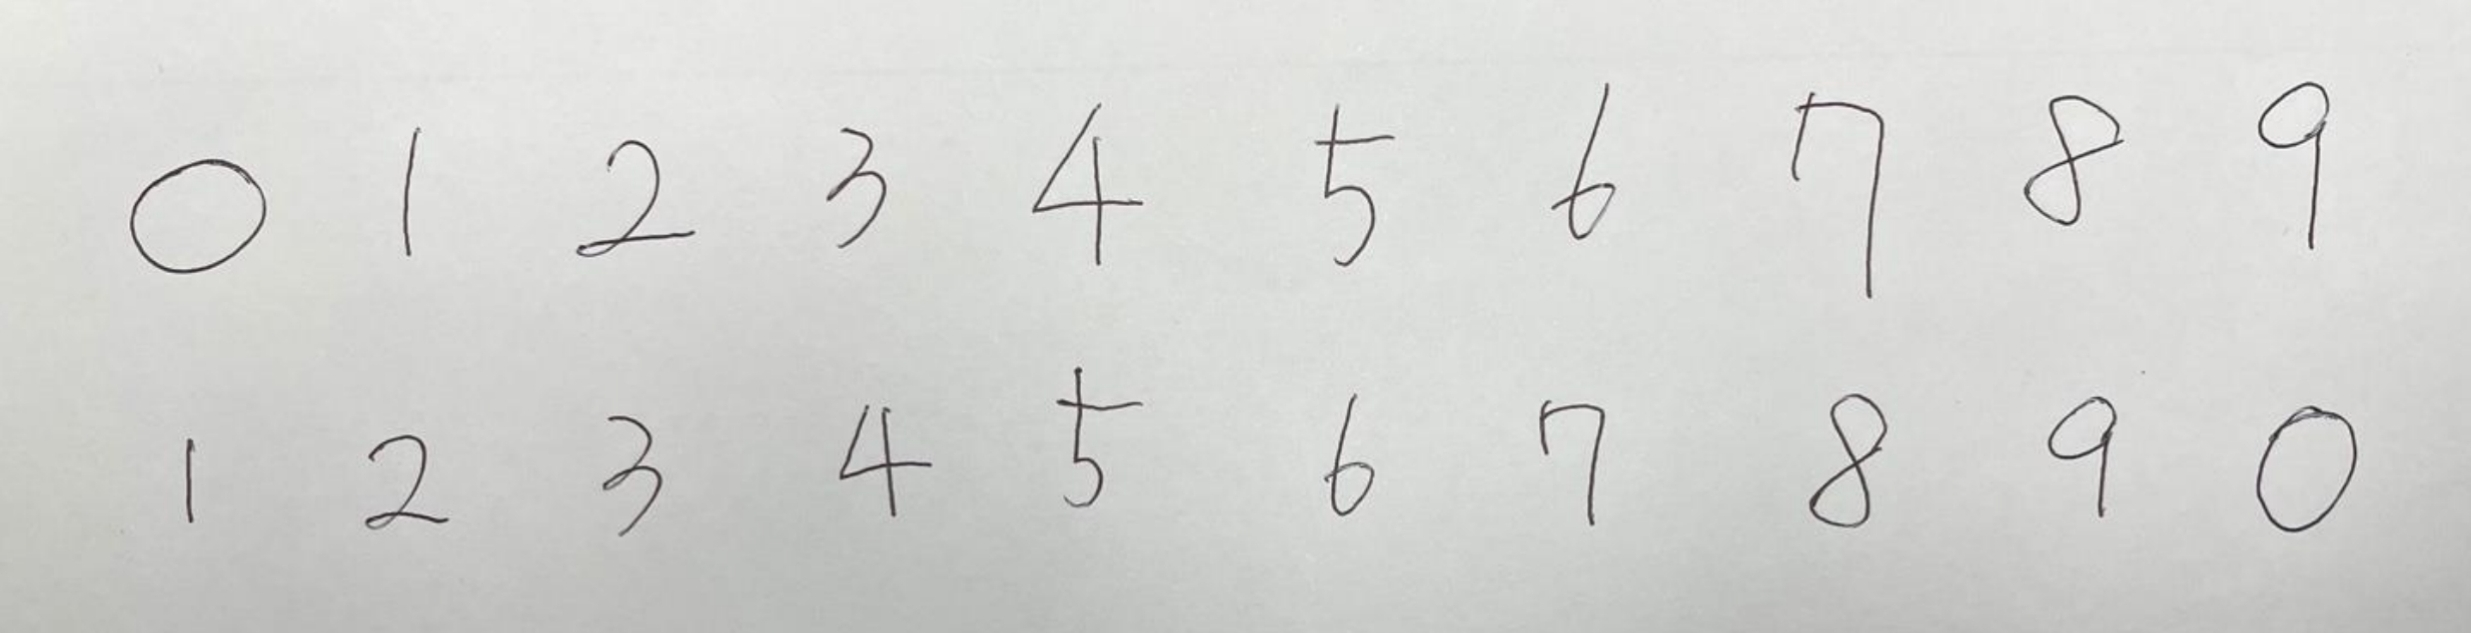 0 1 2 3 4 5 6 7 8 9
1 2 3 4 5 6 7 8 9 0